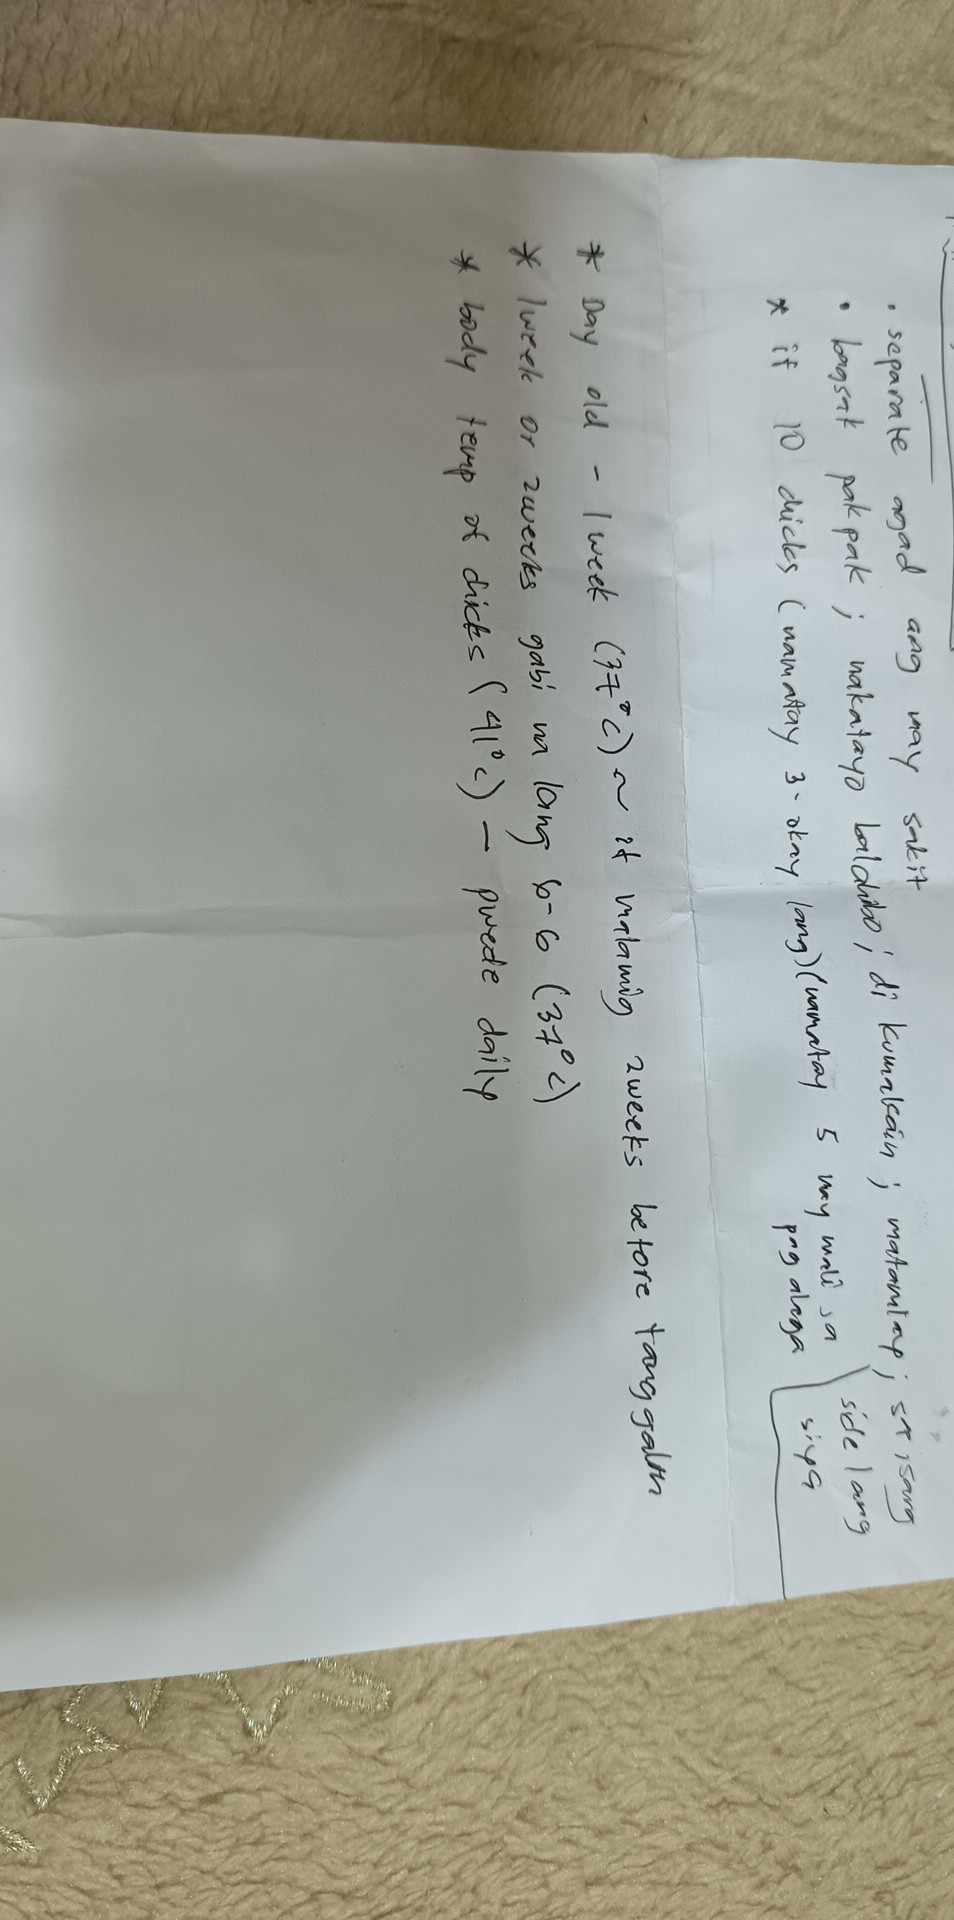 • separate agad ang may sakit
• bagsak pakpak ; nakatayo balahibo ; di kumakain ; matamlay ; sa isang side lang siya
* if 10 chicks (namatay 3 - okay lang) (namatay 5 may mali sa pag alaga
* Day old - 1 week (37°C) ~ if malamig 2weeks before tanggalin
* 1week or 2weeks gabi na lang 6-6 (37°C)
* body temp of chicks (41°C) - pwede daily